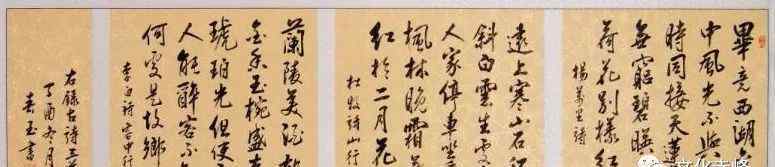 畢竟西湖
中風光不與
時同接天蓮
無窮碧映
荷花別樣紅
楊萬里詩
遠上寒山石徑
斜白雲生處
人家停車坐
楓林晚霜
紅於二月花
杜牧詩山行
蘭陵美酒鬱
金香玉椀盛來
琥珀光但使
人能醉客不
何處是故鄉
李白詩客中行
右錄古詩三
丁酉冬月
春玉書
文化赤峰